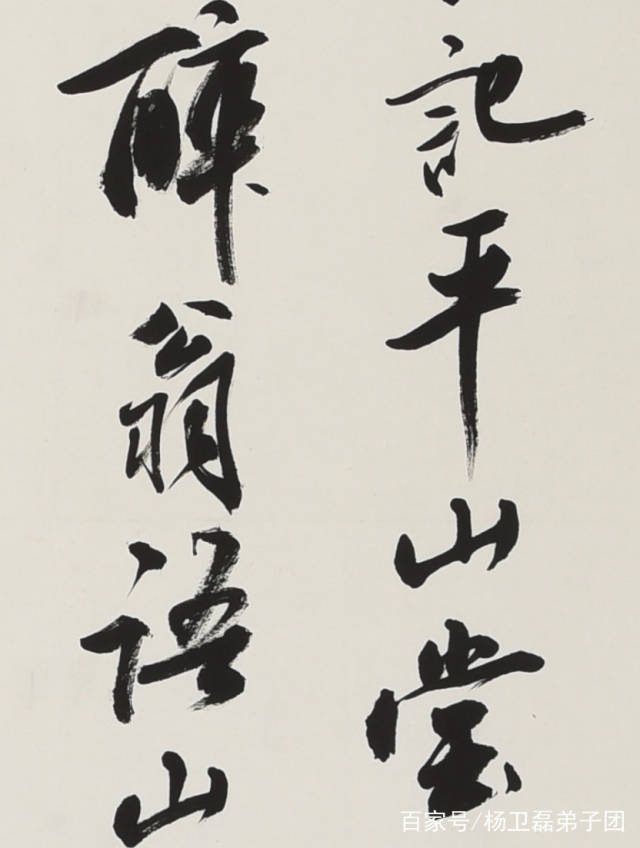 記平山堂
醉翁语山
百家号/杨卫磊弟子团